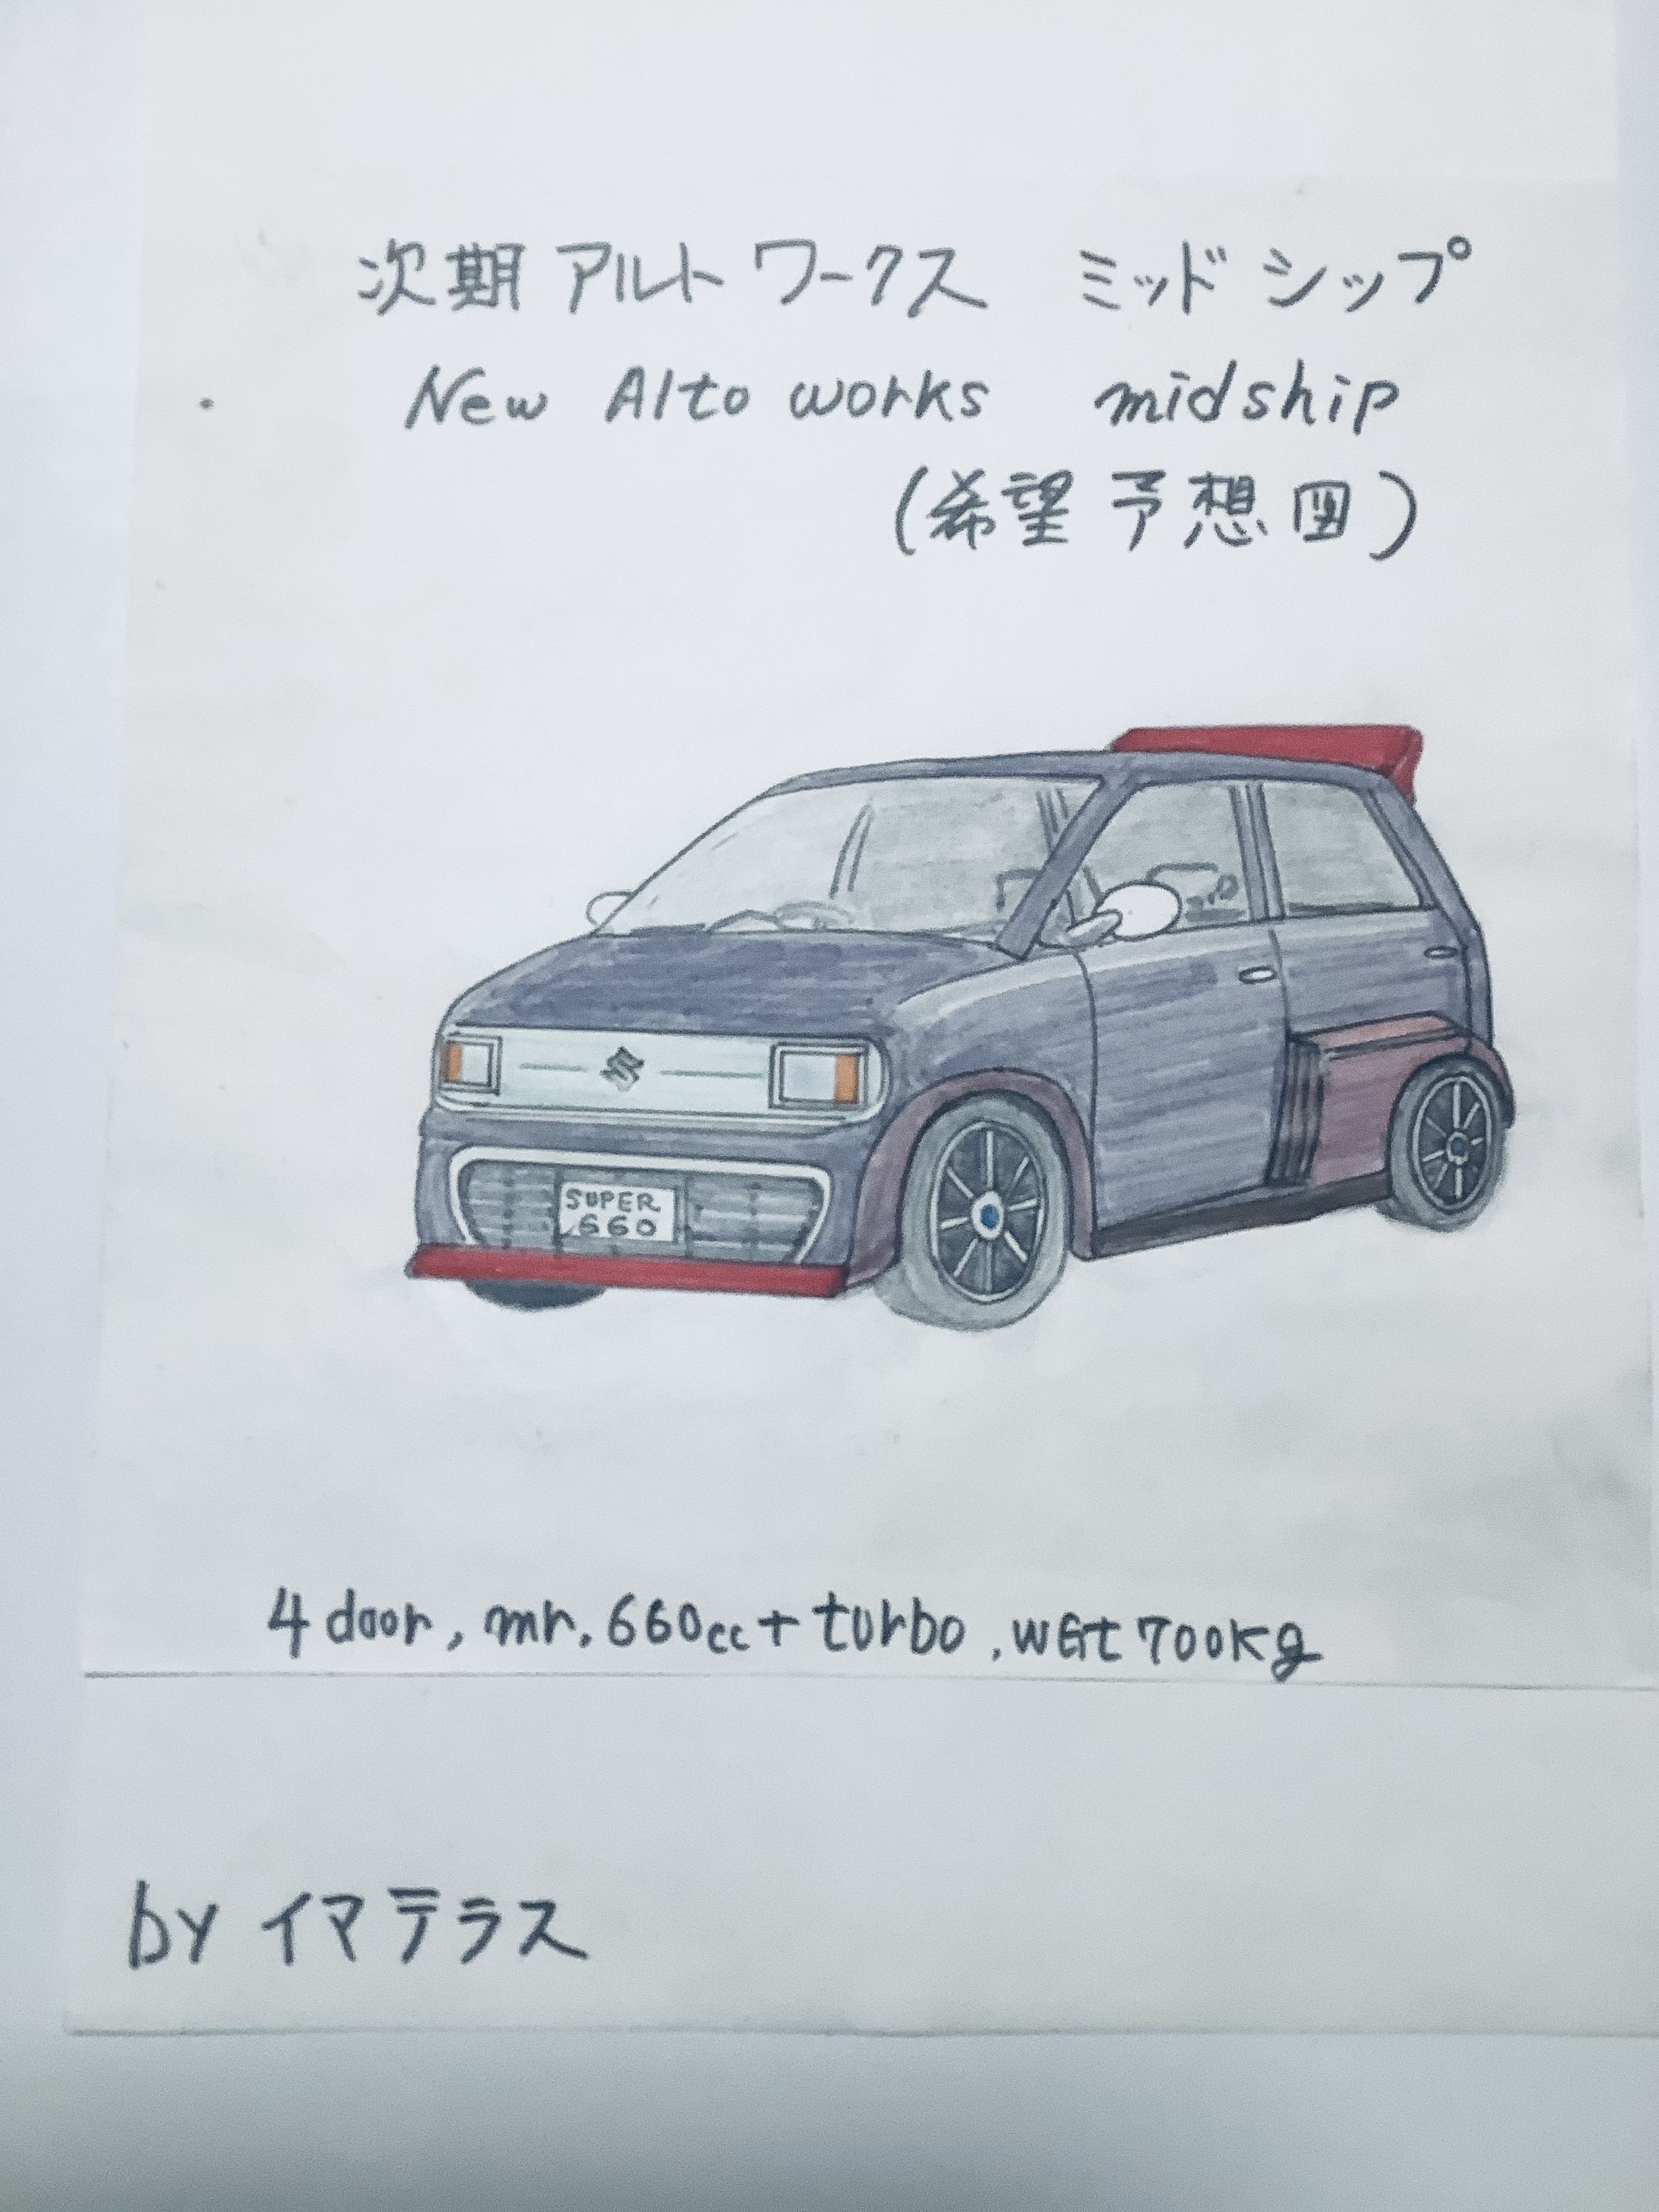 次期アルトワークス ミッドシップ
New Alto works midship
(希望予想図)
SUPER
660
4door, mr. 660cc+turbo. wGt 700kg
by イマテラス